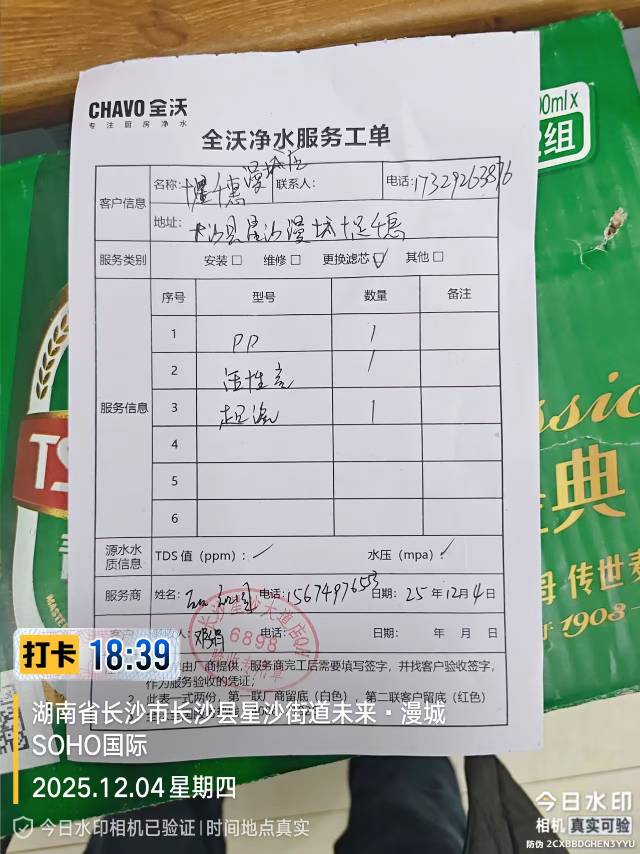 CHAVO 全沃
专注厨房净水
全沃净水服务工单
客户信息
名称:
联系人:
电话: 17329263876
地址: 长沙县星沙漫城
服务类别 安装□ 维修□ 更换滤芯☑ 其他□
服务信息
序号 型号 数量 备注
1 PP 1
2 活性炭 1
3 超滤 1
4
5
6
源水水质信息 TDS值（ppm）: ✓ 水压（mpa）: ✓
服务商 姓名: 电话: 15674976553 日期: 25 年 12 月 4 日
电话: 日期: 年 月 日
6898
由厂商提供，服务商完工后需要填写签字，并找客户验收签字，
作为服务验收的凭证；
2、此表一式两份，第一联厂商留底（白色），第二联客户留底（红色）
00ml x
2组
TS
ssic
典
母 传世素
1908
MASTE
打卡 18:39
湖南省长沙市长沙县星沙街道未来·漫城
SOHO国际
2025.12.04 星期四
今日水印相机已验证 | 时间地点真实
今日水印
相机 真实可验
防伪 2CXBBDGHEN3YYU